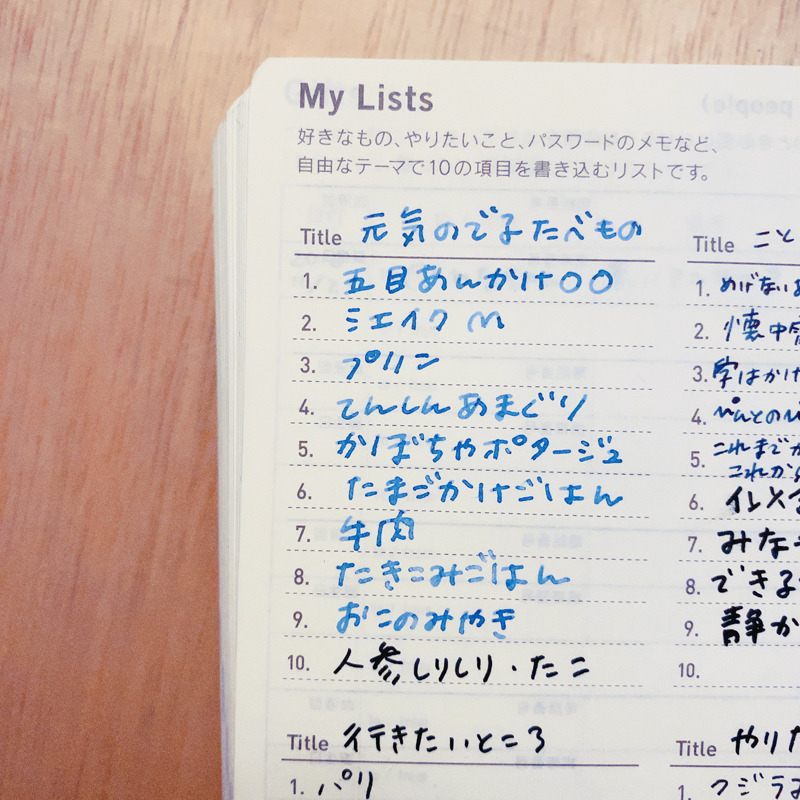 My Lists
好きなもの、やりたいこと、パスワードのメモなど、
自由なテーマで10の項目を書き込むリストです。
Title 元気のでる たべもの
1. 五目あんかけ〇〇
2. シェイク M
3. プリン
4. てんしんあまぐり
5. かぼちゃポタージュ
6. たまごかけごはん
7. 牛肉
8. たきこみごはん
9. おこのみやき
10. 人参しりしり・たこ
Title 行きたいところ
1. パリ
Title こと
1. めげない
2. 懐中
3. 字はかけ
4. ぺんとの
5. これまで
これから
6.
7. みな
8. できる
9. 静か
10.
Title やりた
1. クジラ